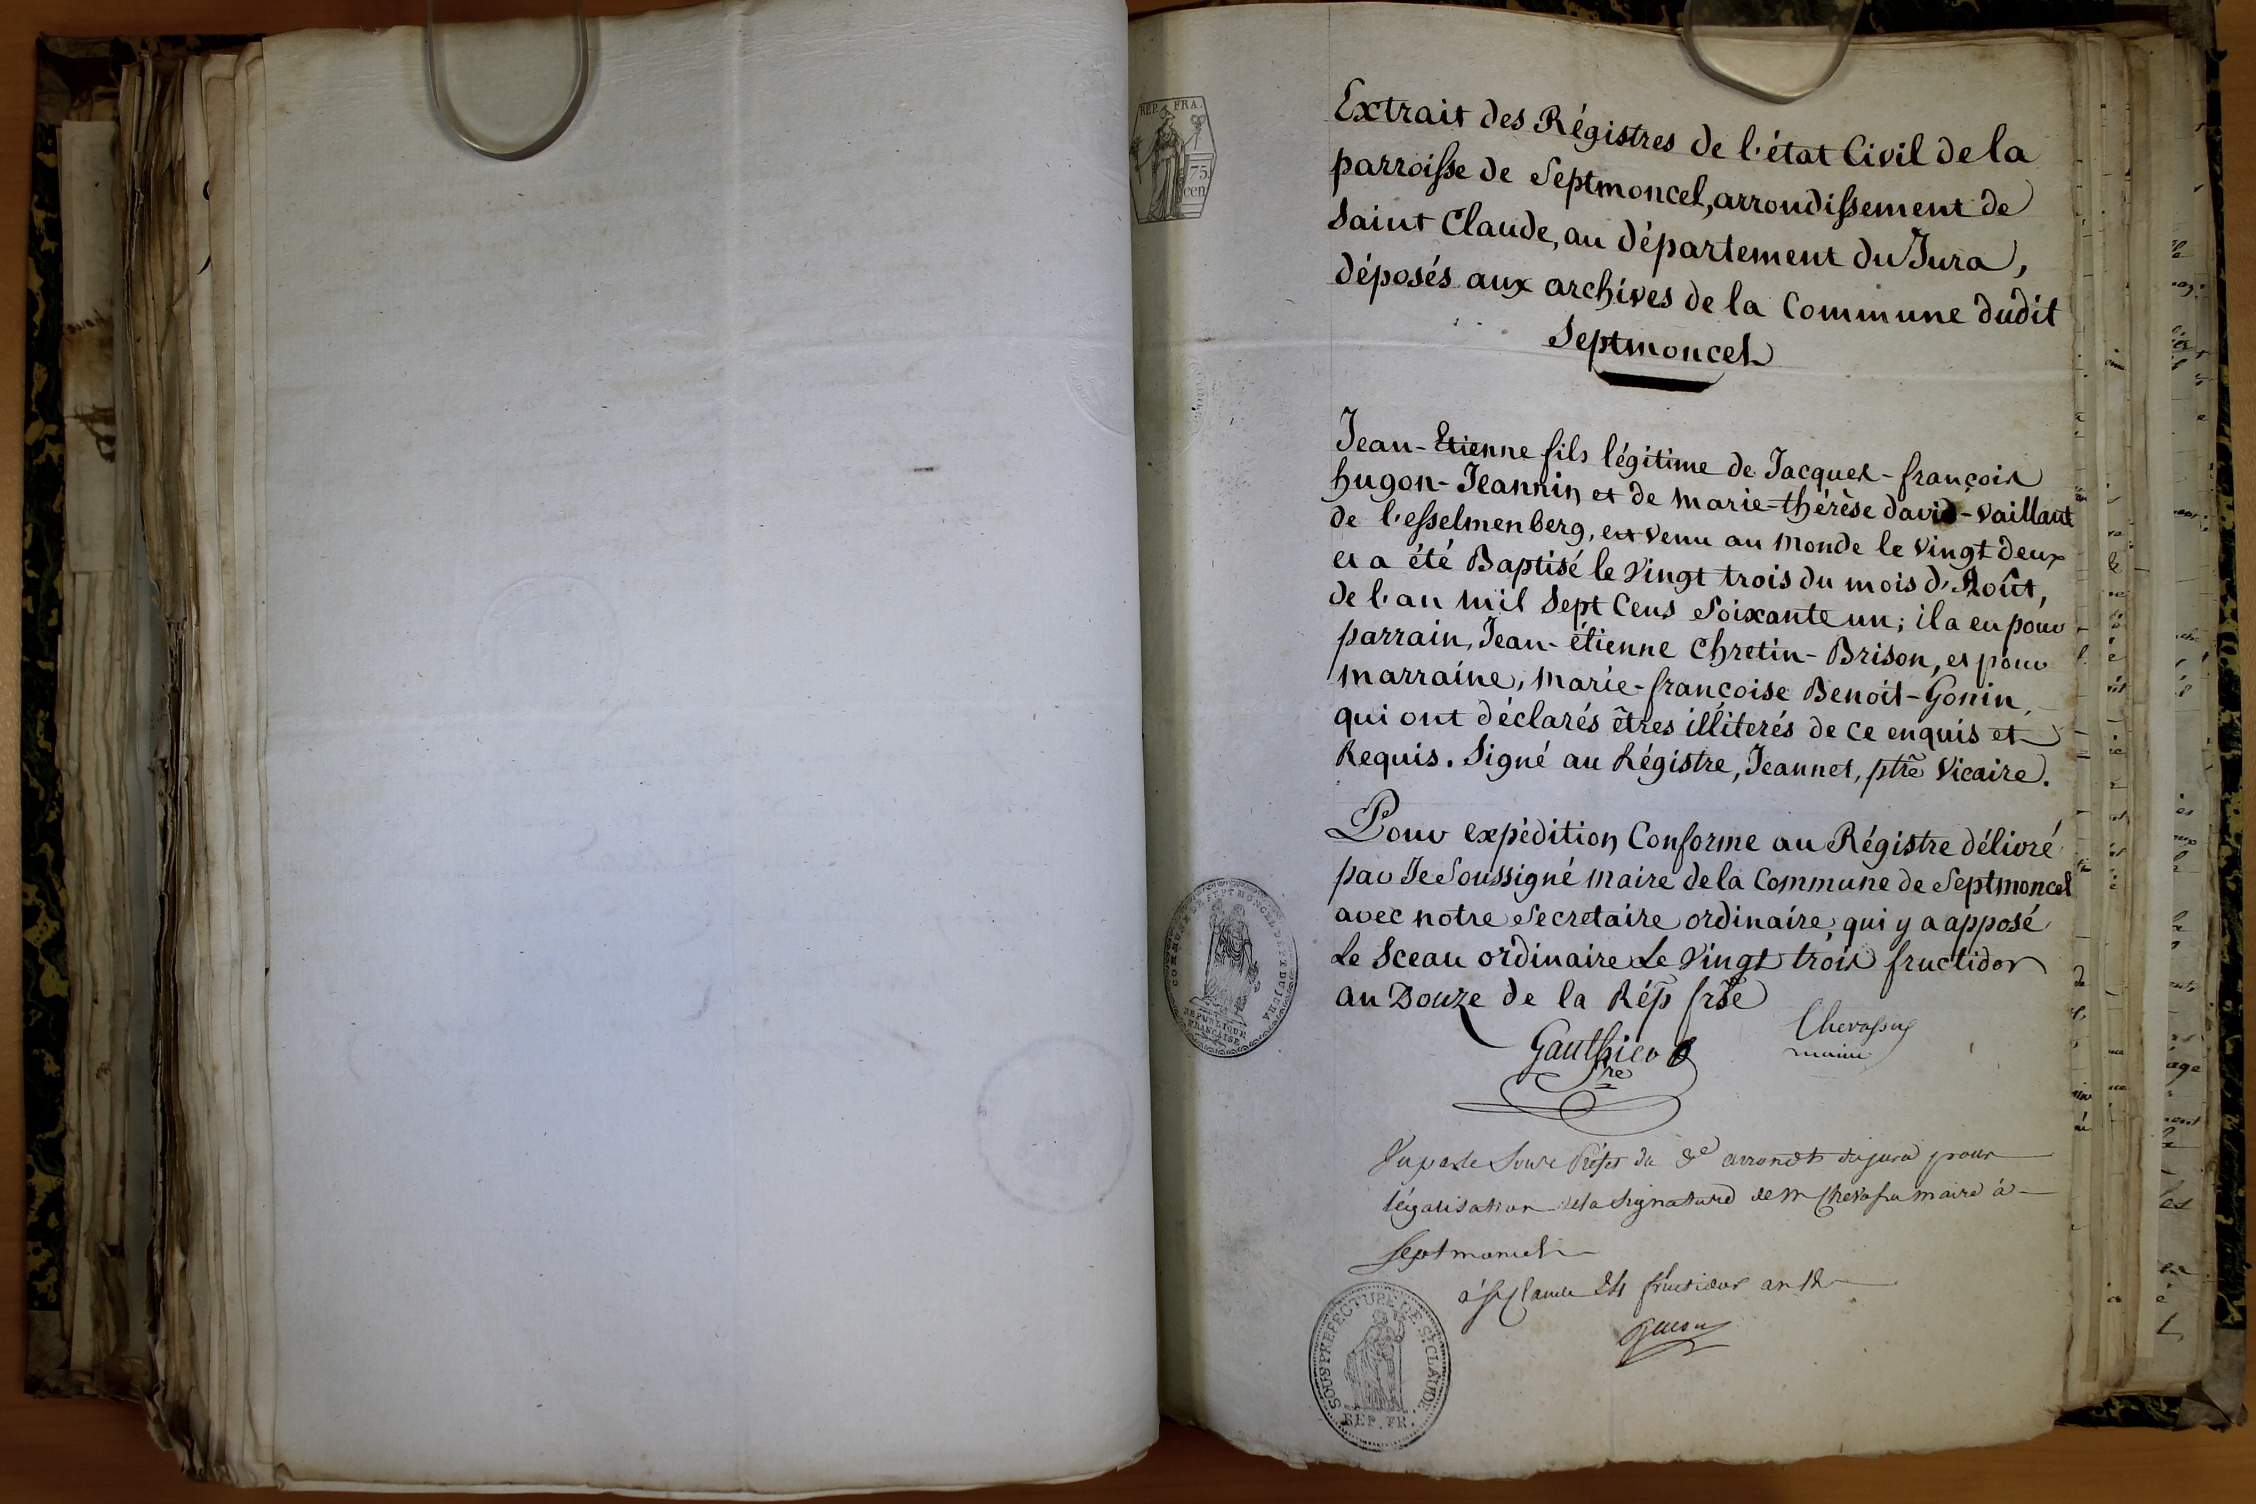 REP. FRA.
75.
cen
Extrait des Régistres de l'état Civil de la
parroisse de Septmoncel, arrondissement de
Saint Claude, au département du Jura,
déposés aux archives de la Commune dudit
Septmoncel
Jean-Etienne fils légitime de Jacques-françois
hugon-Jeannin et de marie-thérèse david-vaillant
de l'esselmenberg, est venu au monde le vingt deux
et a été Baptisé le vingt trois du mois d'Août,
de l'an mil sept cens soixante un; il a eu pour
parrain, Jean-étienne Chretin-Brison, et pour
marraine, marie-françoise Benoit-Gonin,
qui ont déclarés êtres illiterés de ce enquis et
Requis. Signé au Régistre, Jeannet, ptre Vicaire.
Pour expédition Conforme au Régistre délivré
par Je Soussigné maire de la Commune de Septmoncel
avec notre Secretaire ordinaire, qui y a apposé
Le Sceau ordinaire Le vingt trois fructidor
an Douze de la Rép frse
COMMUNE DE SEPTMONCEL DEPT DU JURA
REPUBLIQUE
FRANCAISE
Gauthier
re
Chevassus
maire
Vu par le Sous Préfet du arrondt du jura pour
légalisation de la signature de Mr Chevassu maire à
Septmoncel
à St Claude 24 fructidor an 12
SOUSPREFECTURE DE ST CLAUDE.
REP. FR.